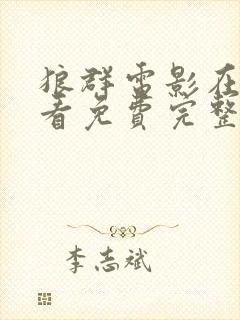 狼群电影在
看免费完整
李志斌